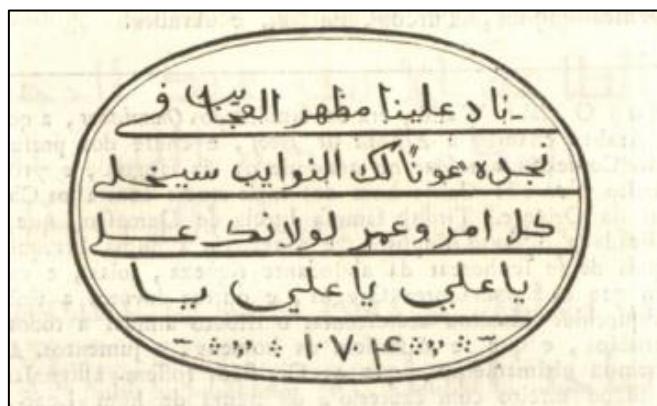 ناد علينا مظهر العجايب في
نجده عونًا لك النوايب سيحلي
كل امر وعمر لولاتك عـلـ
ياعلي ياعلي يبـا
١٠٧۴